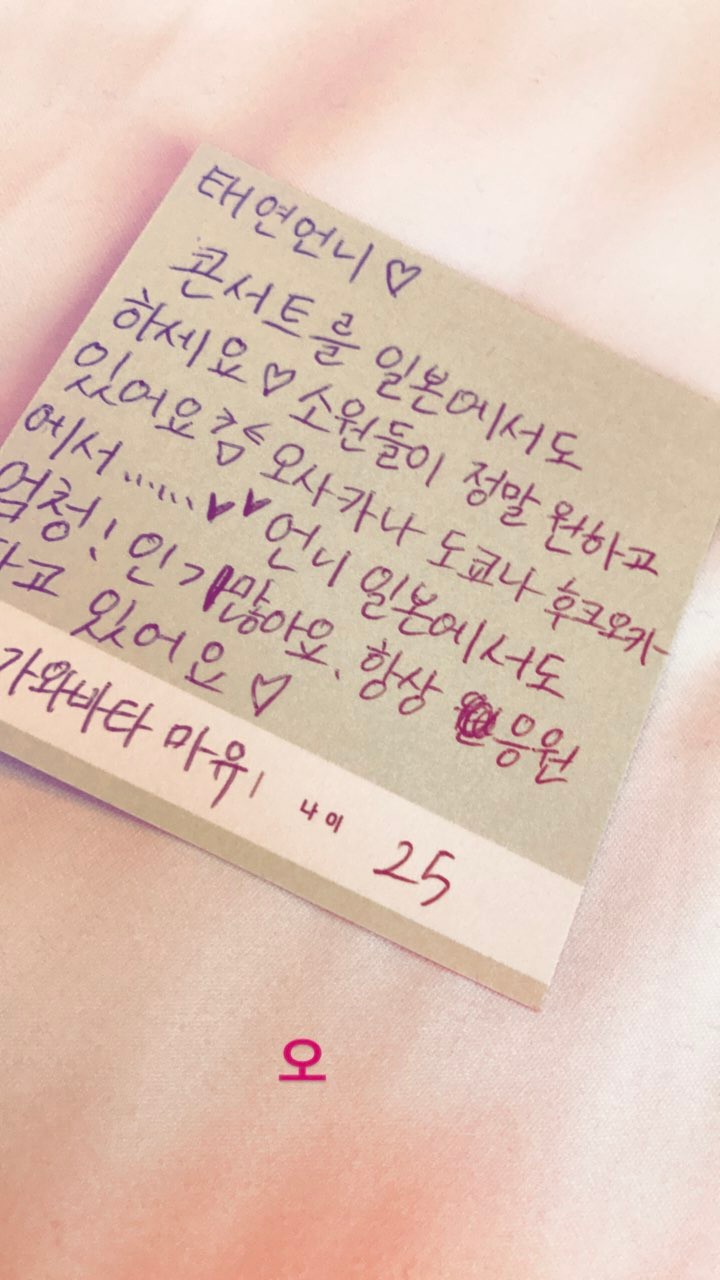 태연언니♡
콘서트를 일본에서도
하세요♡소원들이 정말 원하고
있어요 오사카나 도쿄나 후크오카
에서......♥♥언니 일본에서도
엄청! 인기많아요. 항상 응원
하고 있어요♡
가와바타 마유
나이 25
오